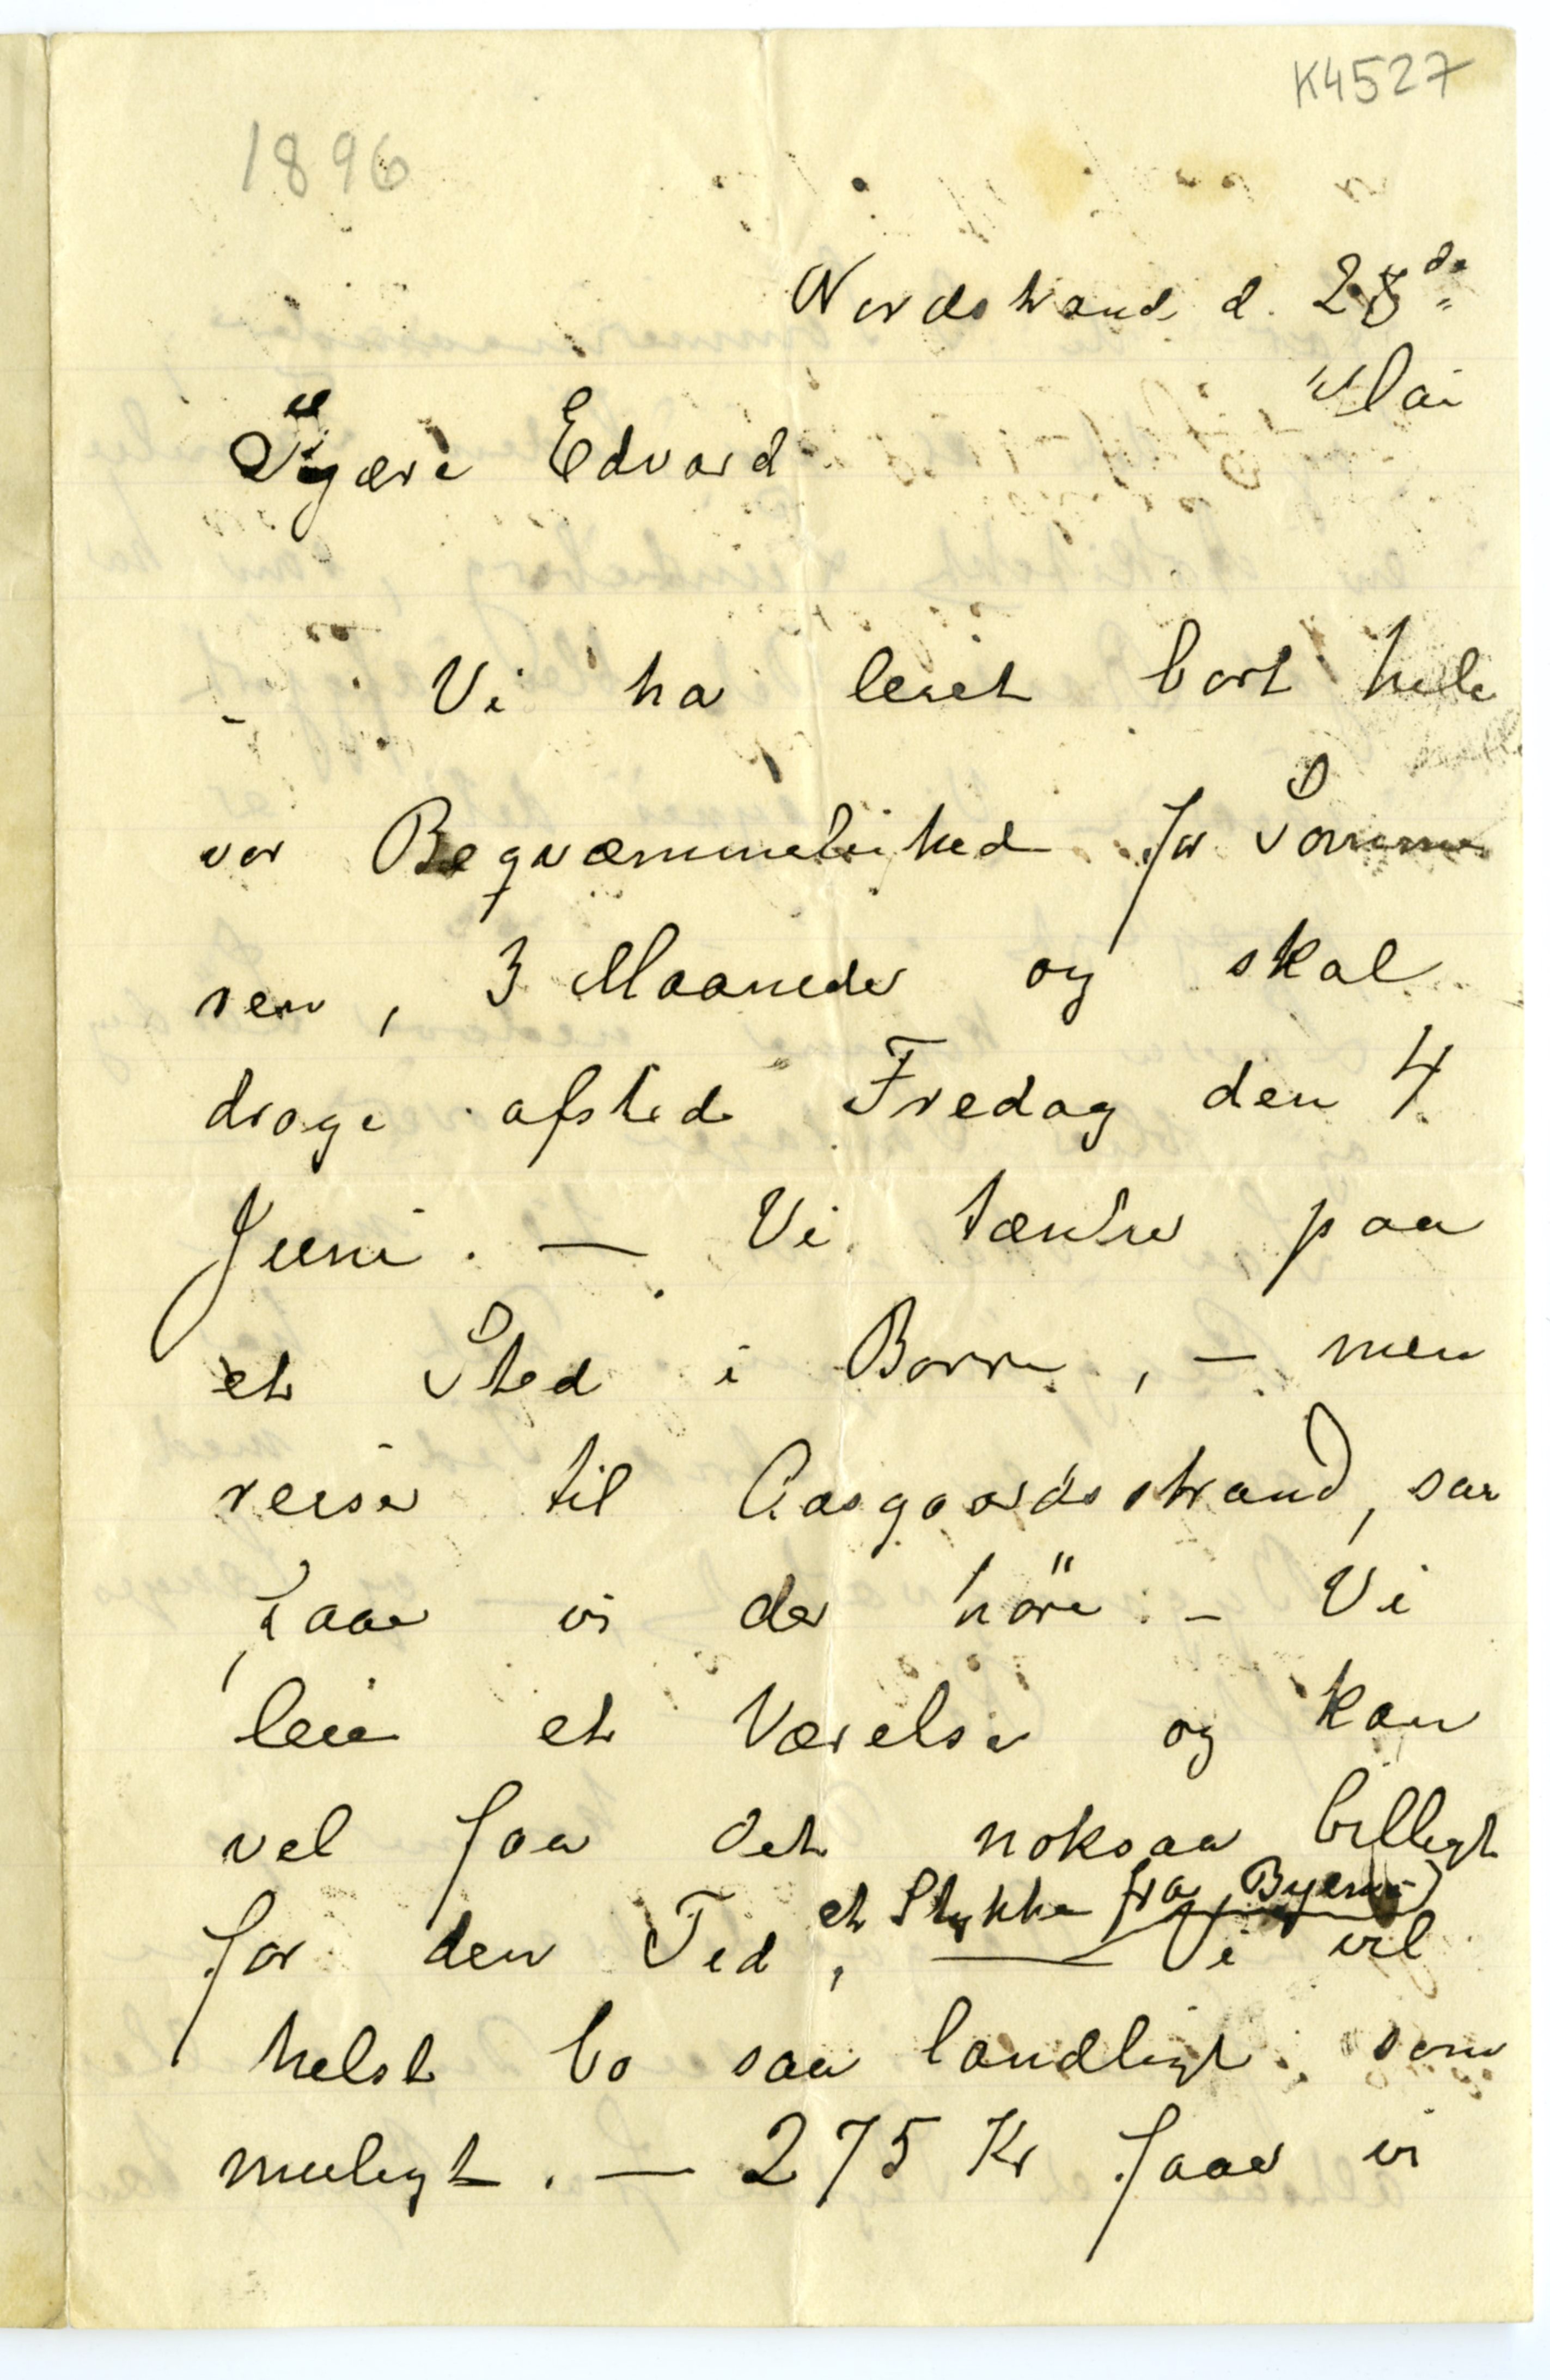 K4527
1896
Nordstrand d. 28de
Mai
Kjære Edvard
Vi ha leiet bort hele
vor Beqvæmmelighed for Somme
ren, 3 Maaneder og skal
drage afsted Fredag den 4
Juni. — Vi tænker paa
et Sted i Borre, — men
reiser til Aasgaardsstrand, saa
faar vi der höre. — Vi
leie et Værelse og kan
vel faa det noksaa billigt
et Stykke fra Byerne
for den Tid, — Vi vil
helst bo saa landligt som
muligt. — 275 Kr faar vi